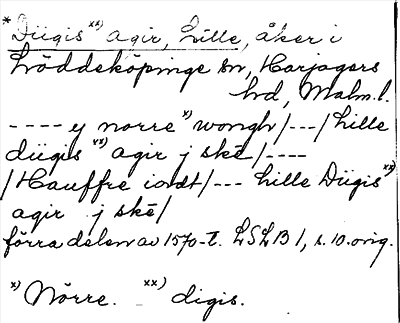 * Diigis xx) agir, Lille, åker i
Löddeköpinge sn, Harjagers
hd, Malm. l.
---- ej norre x) wongh/---/Lille
diigis xx) agir j skē/----
/Hauffre iordt/--- Lille Diigis xx)
agir j skē/
förra delen av 1570-t. LSLB 1, s. 10. orig.
x) Nörre. xx) digis.